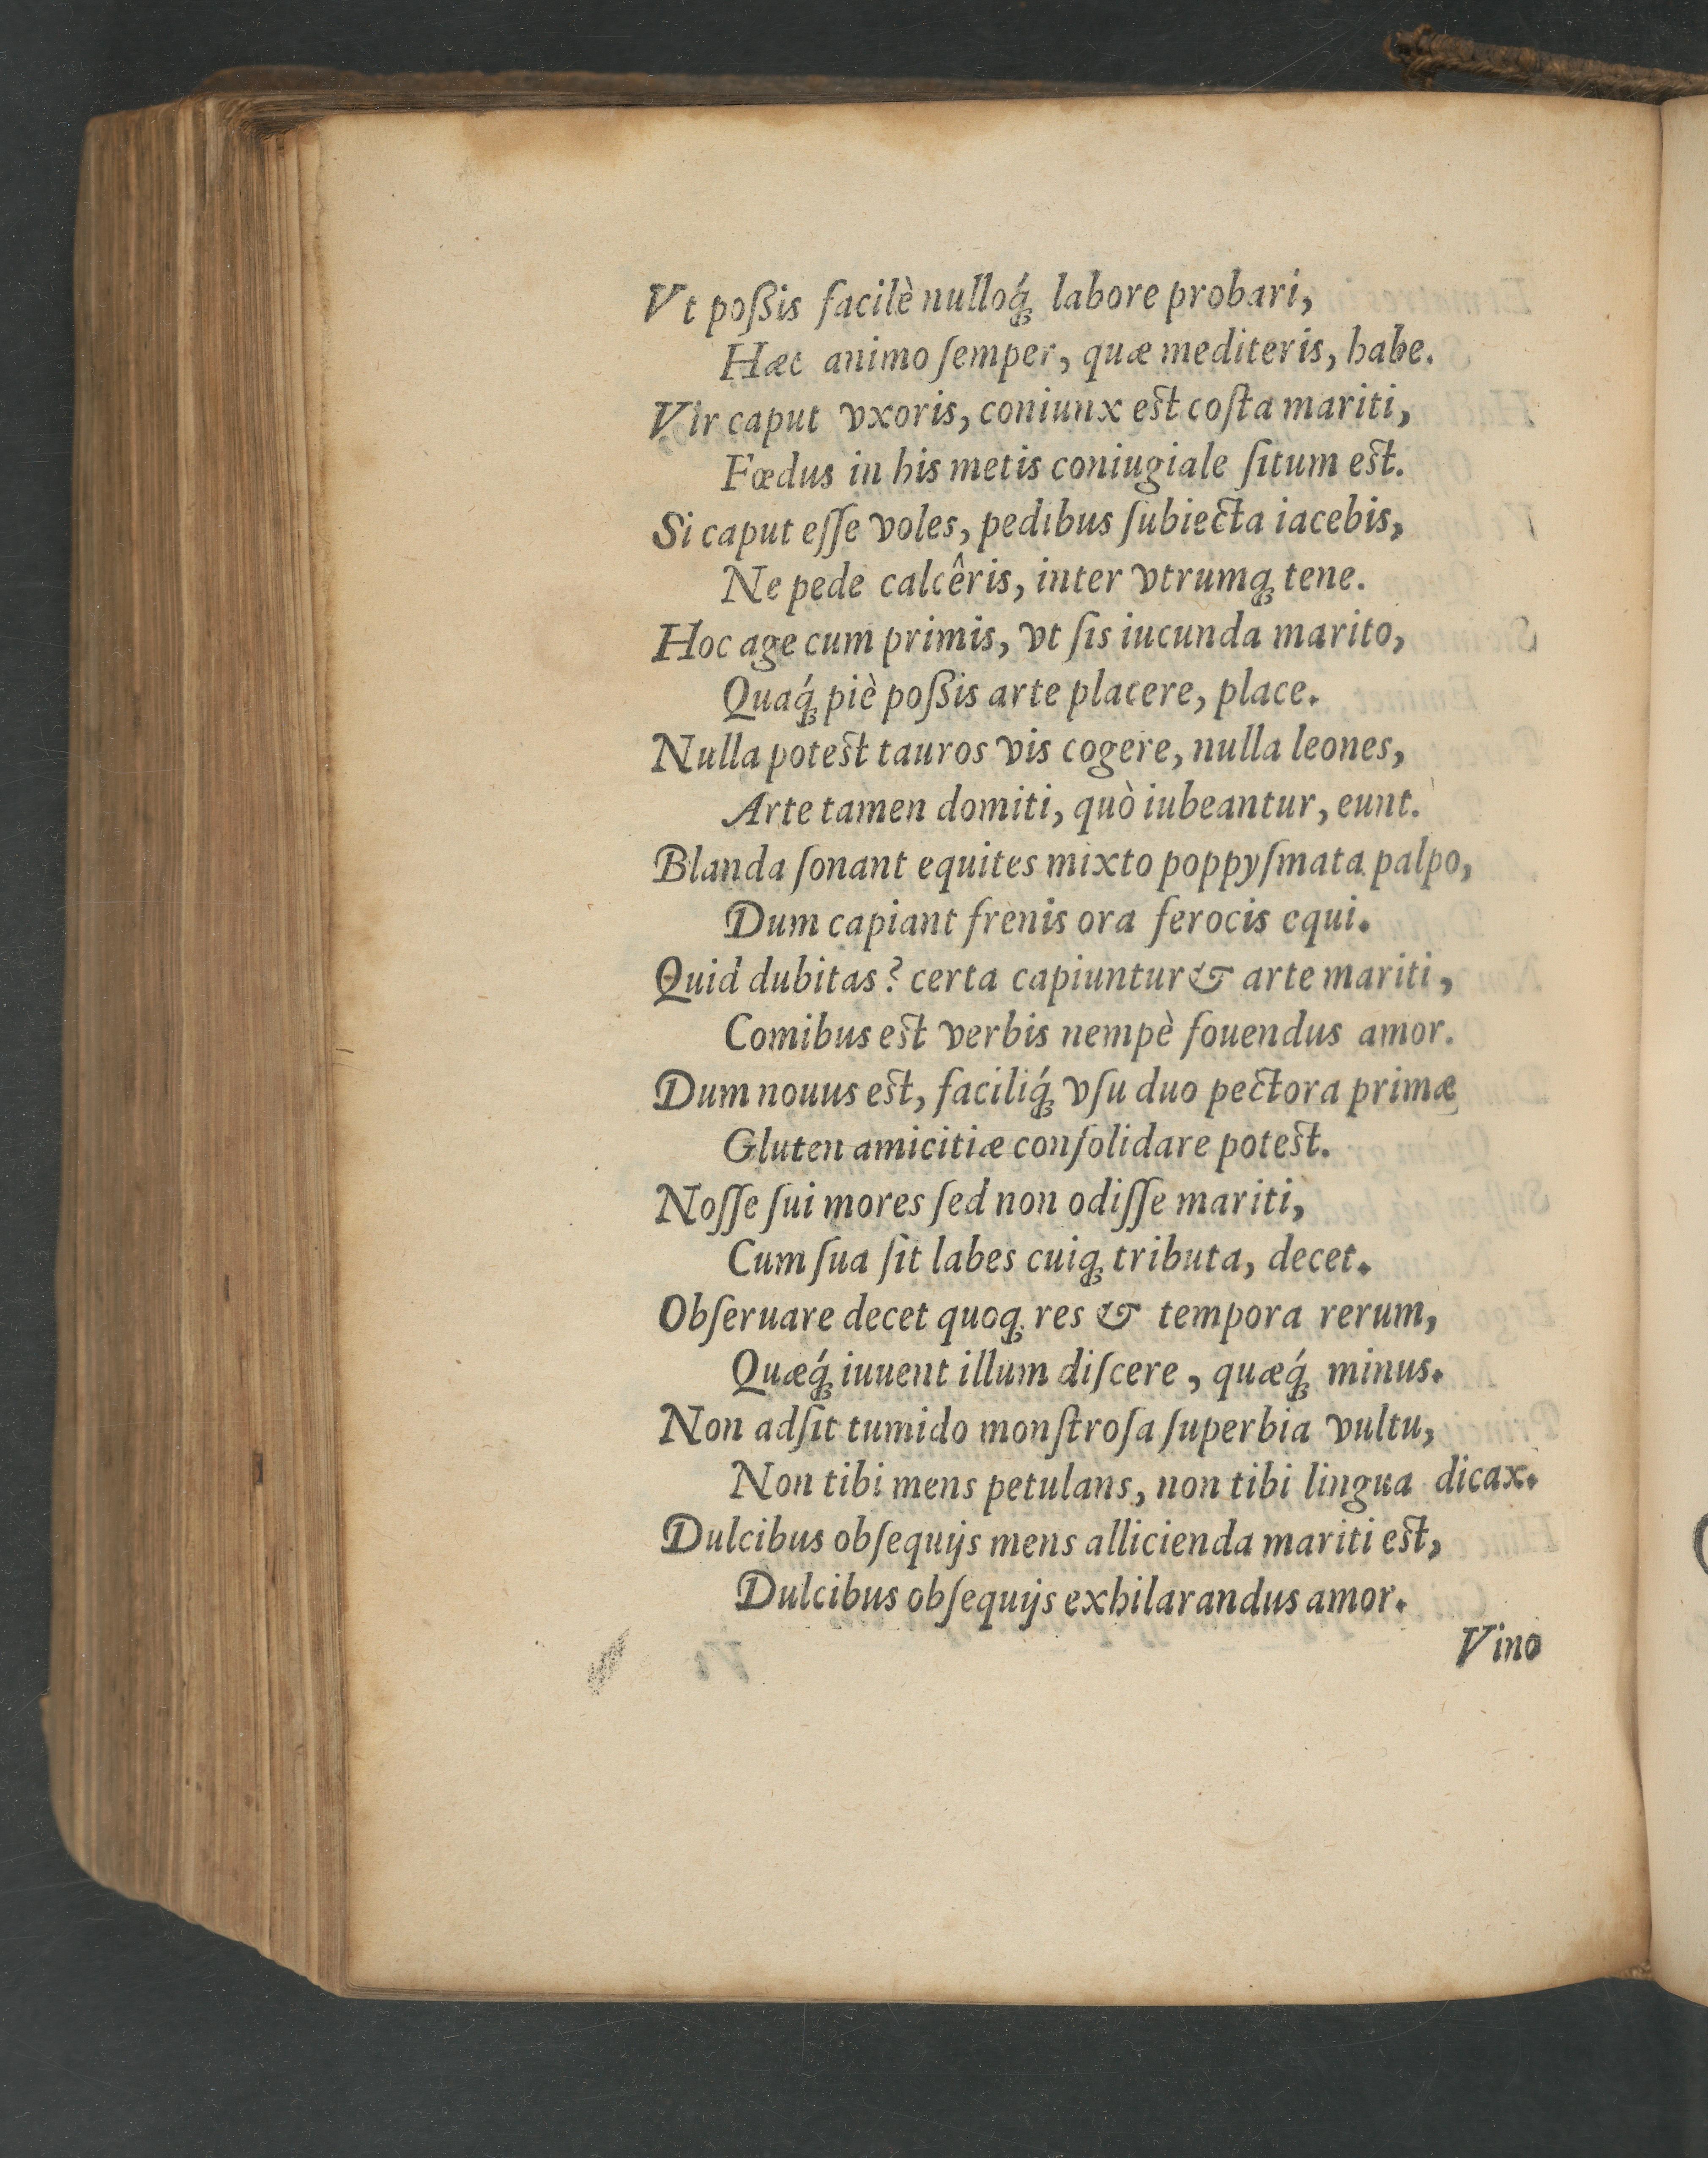 Vt poßis facilè nulloq́ꝫ labore probari,
Hæc animo ſemper, quæ mediteris, habe.
VIr caput vxoris, coniunx est coſta mariti,
Fœdus in his metis coniugiale ſitum est.
Si caput eſſe voles, pedibus ſubiecta iacebis,
Ne pede calcêris, inter vtrumqꝫ tene.
Hoc age cum primis, vt ſis iucunda marito,
Quaq́ꝫ piè poßis arte placere, place.
Nulla potest tauros vis cogere, nulla leones,
Arte tamen domiti, quò iubeantur, eunt.
Blanda ſonant equites mixto poppyſmata palpo,
Dum capiant frenis ora ferocis equi.
Quid dubitas? certa capiuntur & arte mariti,
Comibus est verbis nempè fouendus amor.
Dum nouus est, faciliq́ꝫ vſu duo pectora primæ
Gluten amicitiæ conſolidare potest.
Noſſe ſui mores ſed non odiſſe mariti,
Cum ſua ſit labes cuiqꝫ tributa, decet.
Obſeruare decet quoqꝫ res & tempora rerum,
Quæq́ꝫ iuuent illum diſcere, quæq́ꝫ minus.
Non adſit tumido monſtroſa ſuperbia vultu,
Non tibi mens petulans, non tibi lingua dicax.
Dulcibus obſequijs mens allicienda mariti est,
Dulcibus obſequijs exhilarandus amor.
Vino